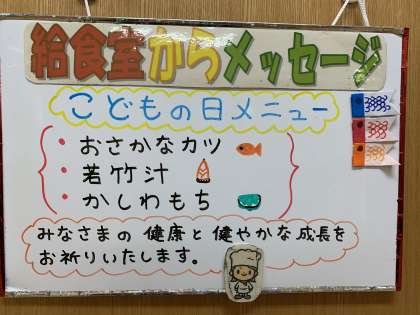 給食室からメッセージ
こどもの日メニュー
・おさかなカツ
・若竹汁
・かしわもち
みなさまの健康と健やかな成長を
お祈りいたします。